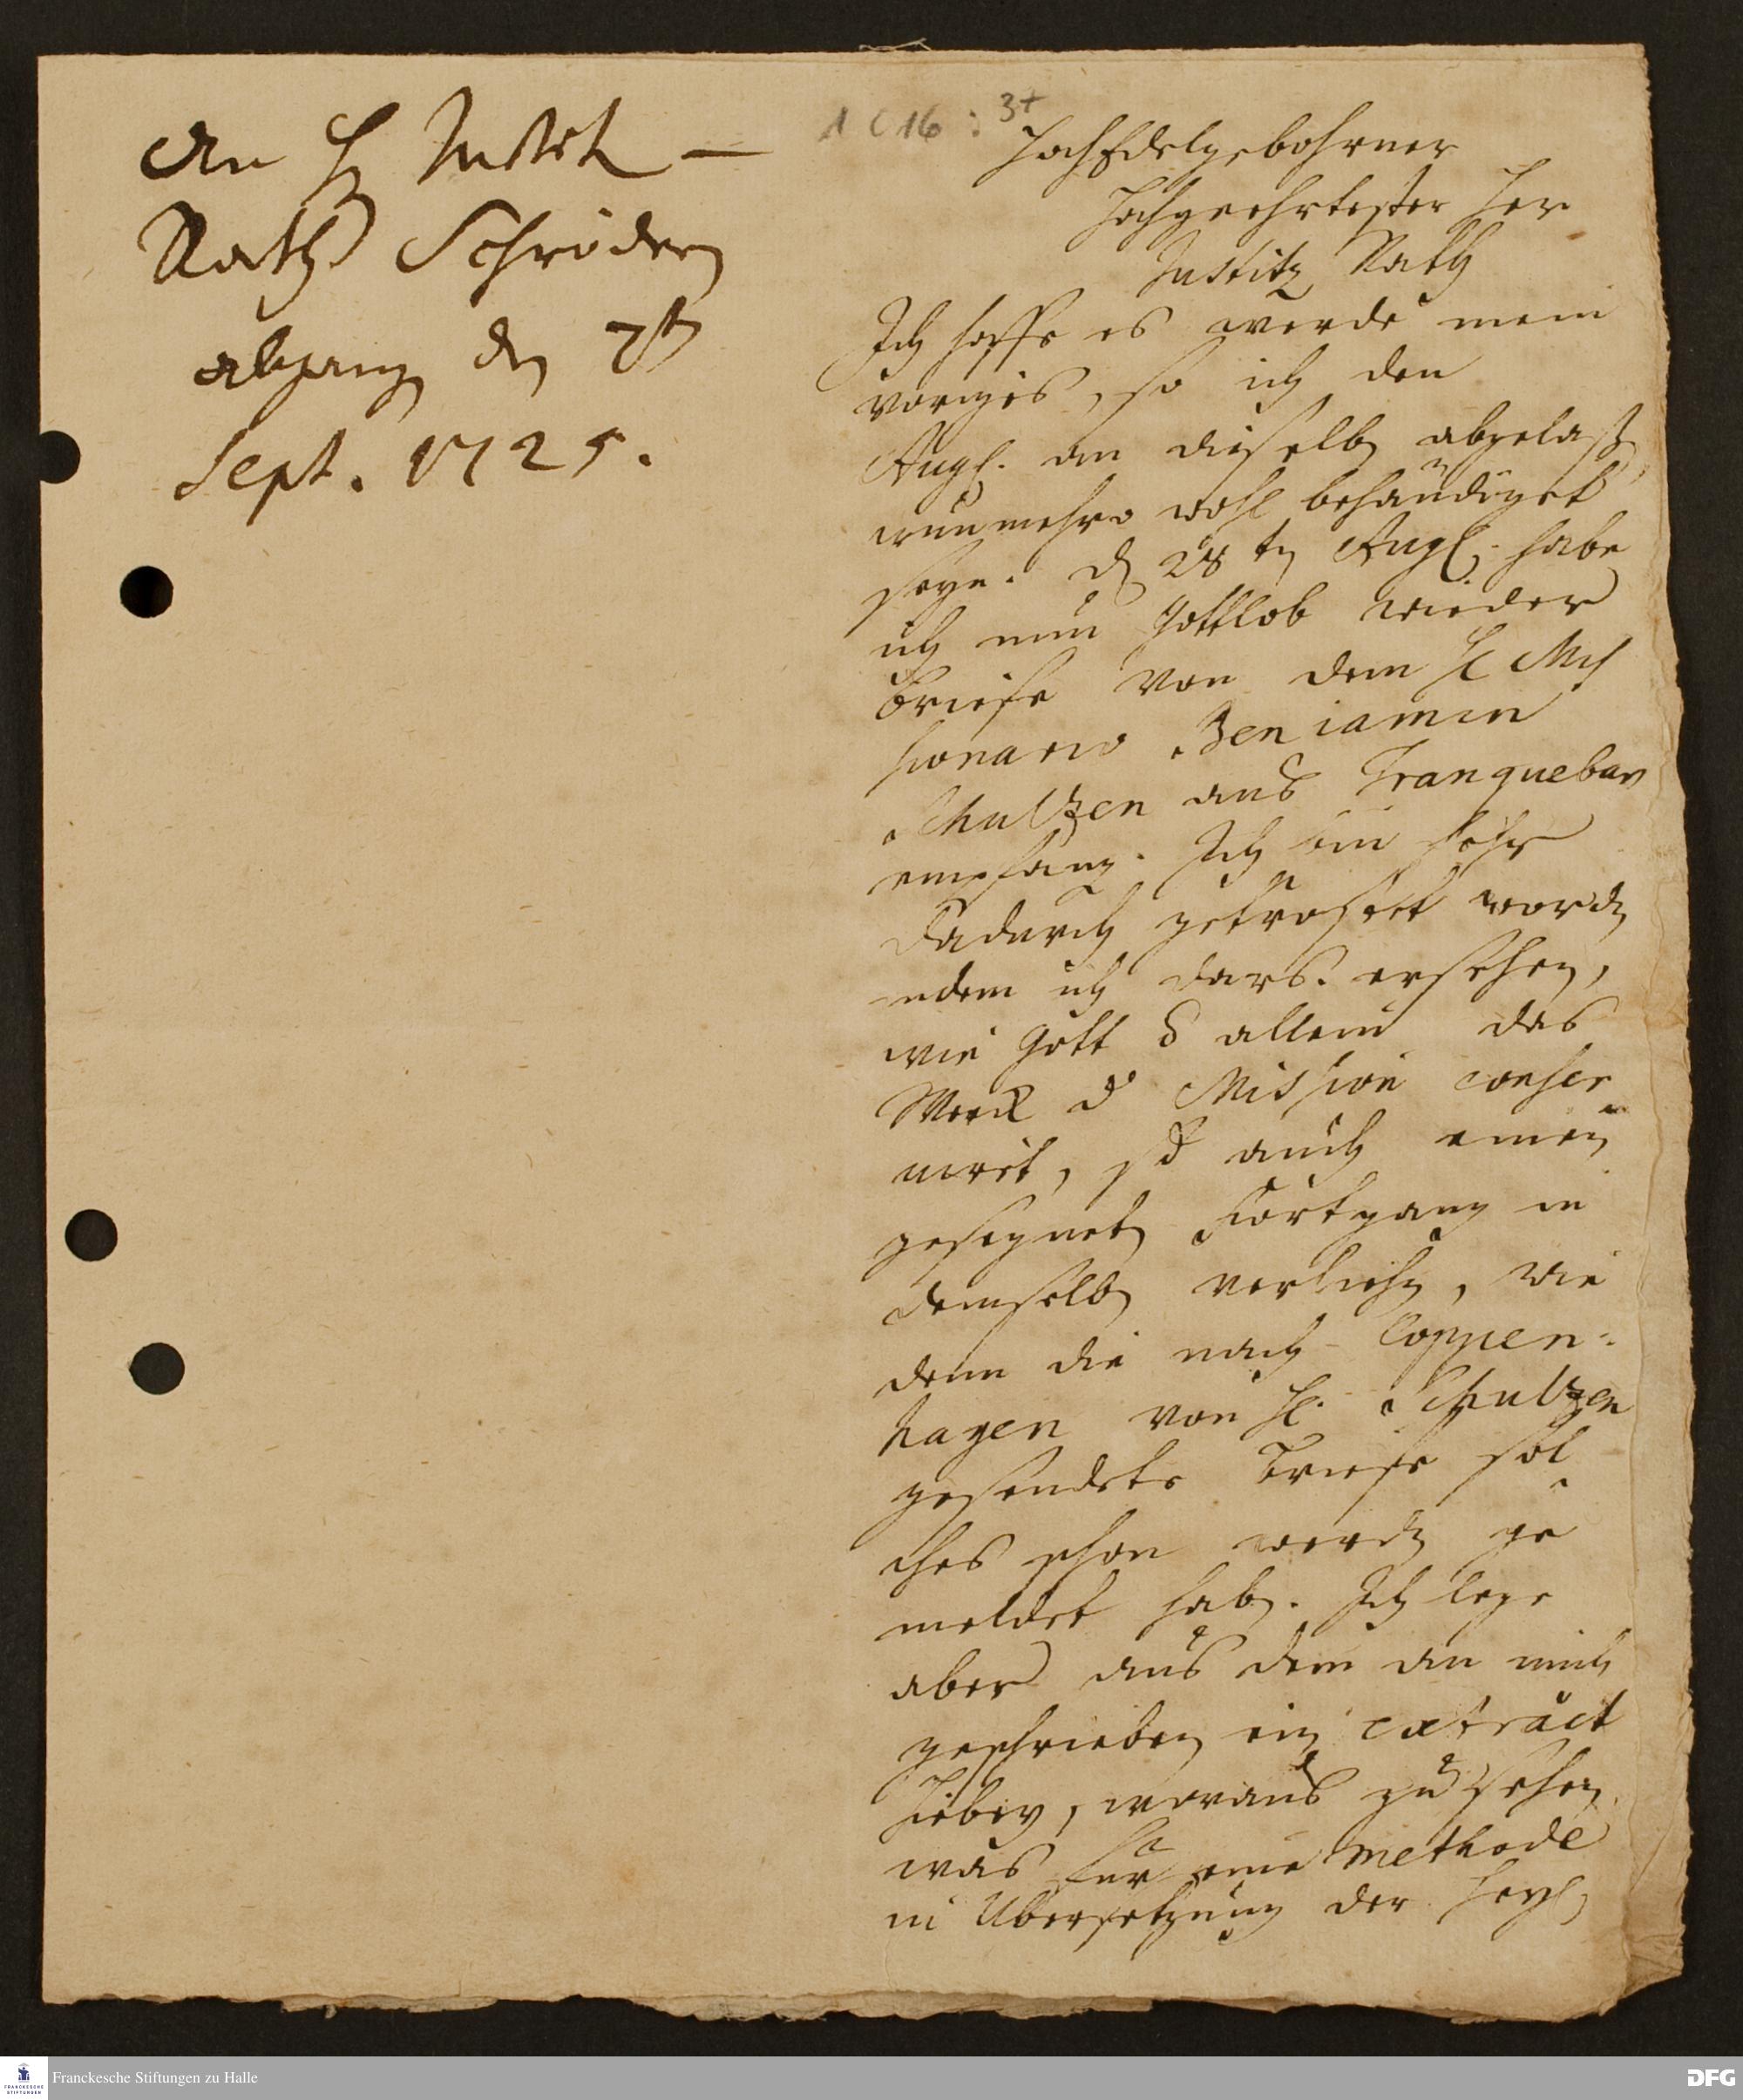 An H. Justitz
Rath Schrödern
abgang den 7ten
Sept. 1725.
1 C 16 : 37
HochEdelgebohrner
Hochgeehrtester Herr
Justitz Rath
Ich hoffe es werde mein
voriges, so ich den
Augl. an dieselbe abgelaß.
nunmehro wohl behändiget
seyn. d 28 ten Augl. habe
ich nun Gottlob wieder
briefe von dem H Mis
sionario Beniamin
Schultzen aus Tranquebar
empfang. Ich bin sehr
dadurch getröstet worden
indem ich daraus ersehen,
wie Gott allein das
Werck d Mission conser
viret, sd auch einen
gesegneten Fortgang in
demselben verliehen, wie
denn die nach Coppen-
hagen von H. Schultzen
gesendete briefe sol
ches schon werden ge
meldet haben. Ich lege
aber aus dem an mich
geschrieben ein extract
hiebey, woraus zu sehen
was für eine Methode
in Ubersetzung der heyl.
Franckesche Stiftungen zu Halle
FRANCKESCHE
STIFTUNGEN
DFG